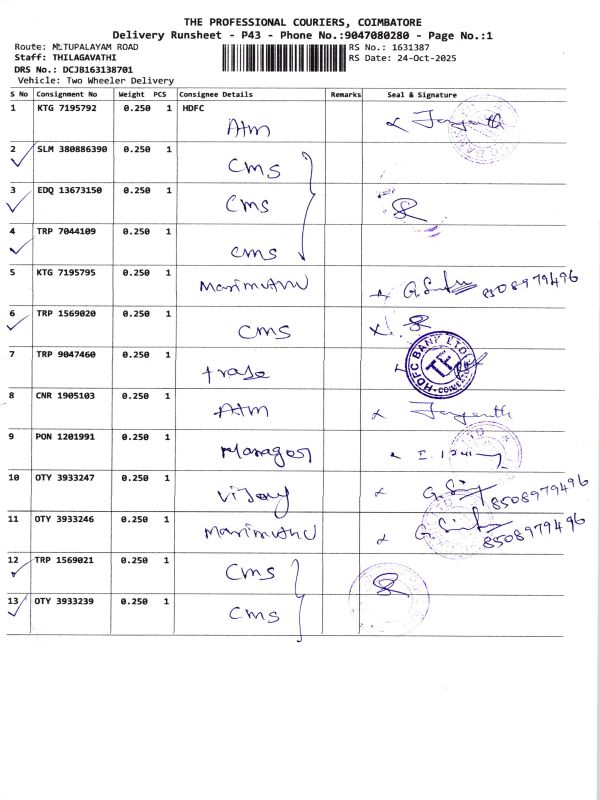 THE PROFESSIONAL COURIERS, COIMBATORE
Delivery Runsheet - P43 - Phone No.:9047080280 - Page No.:1
Route: MLTUPALAYAM ROAD RS No.: 1631387
Staff: THILAGAVATHI RS Date: 24-Oct-2025
DRS No.: DCJB163138701
Vehicle: Two Wheeler Delivery
S No Consignment No Weight PCS Consignee Details Remarks Seal & Signature
1 KTG 7195792 0.250 1 HDFC
Atm
2 SLM 380886390 0.250 1
cms
3 EDQ 13673150 0.250 1
cms
4 TRP 7044109 0.250 1
cms
5 KTG 7195795 0.250 1
Marimuthu 8508979496
6 TRP 1569020 0.250 1
cms
7 TRP 9047460 0.250 1
trade HDFC BANK LTD TF
8 CNR 1905103 0.250 1
Atm
9 PON 1201991 0.250 1
Manager
10 OTY 3933247 0.250 1
Vijay 8508979496
11 OTY 3933246 0.250 1
Marimuthu 8508979496
12 TRP 1569021 0.250 1
cms
13 OTY 3933239 0.250 1
cms